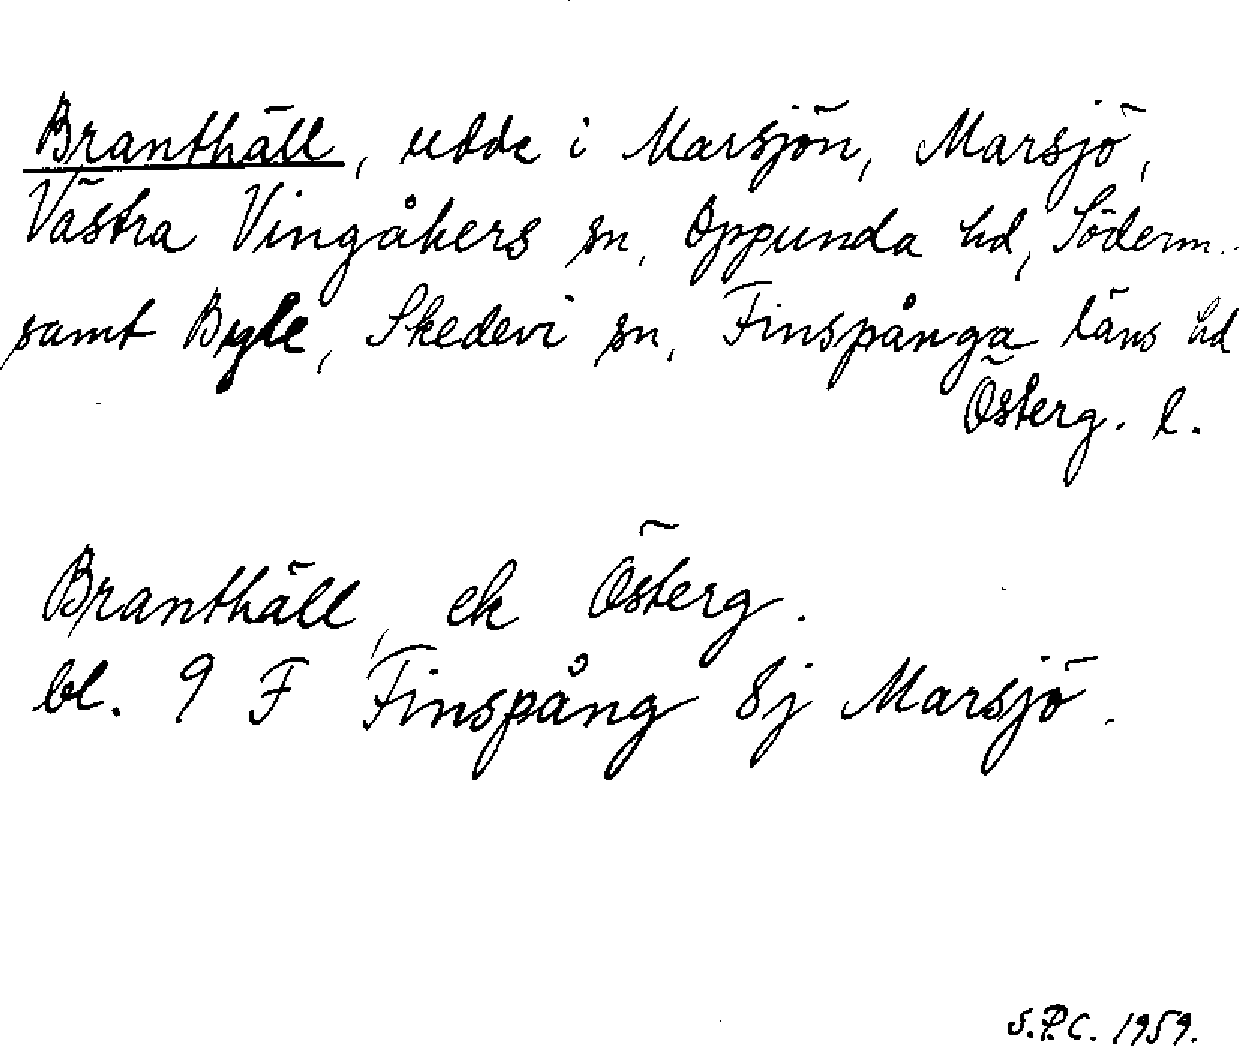 Branthäll, udde i Marsjön, Marsjö,
Västra Vingåkers sn, Oppunda hd, Söderm.
samt Byle, Skedevi sn, Finspånga läns hd
Österg. l.
Branthäll, ek Österg.
bl. 9 F Finspång 8j Marsjö.
S.P.C. 1959.